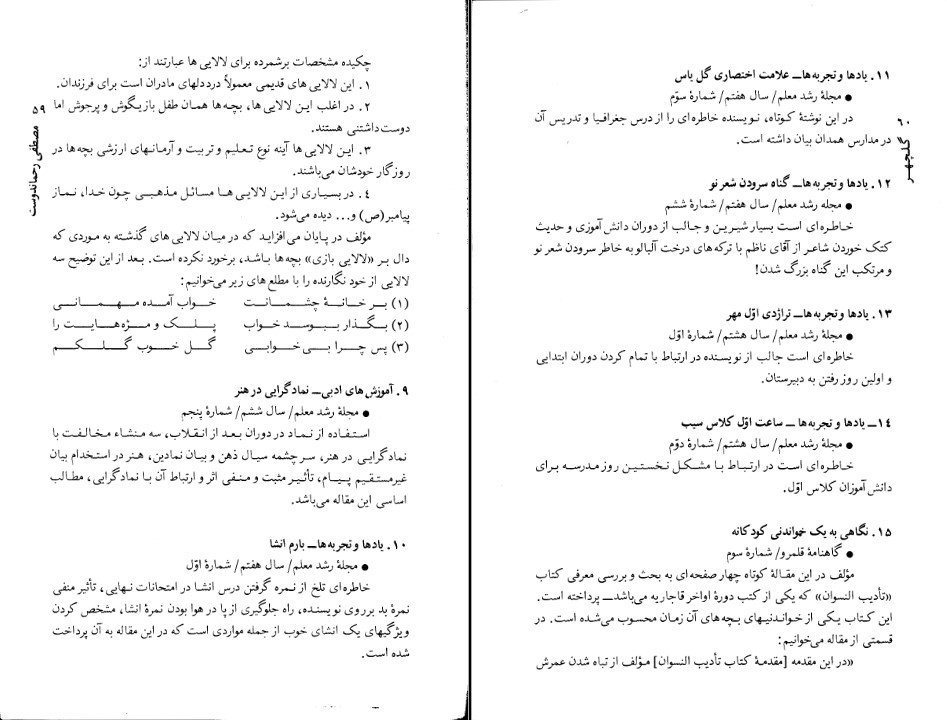 چکیده مشخصات برشمرده برای لالایی ها عبارتند از:
۱. این لالایی های قدیمی معمولاً درددلهای مادران است برای فرزندان.
۲. در اغلب این لالایی ها، بچه‌ها همان طفل بازیگوش و پرجوش اما
دوست‌داشتنی هستند.
۳. این لالایی‌ها آینه نوع تعلیم و تربیت و آرمانهای ارزشی بچه‌ها در
روزگار خودشان می‌باشند.
٤. در بسیاری از این لالایی ها مسائل مذهبی چون خدا، نماز
پیامبر(ص) و... دیده می‌شود.
مؤلف در پایان می‌افزاید که در میان لالایی های گذشته به موردی که
دال بر «لالایی بازی» بچه‌ها باشد، برخورد نکرده است. بعد از این توضیح سه
لالایی از خود نگارنده را با مطلع های زیر می‌خوانیم:
(۱) بر خانهٔ چشمانت خواب آمده مهمانی
(۲) بگذار ببوسد خواب پلک و مژه‌هایت را
(۳) پس چرا بی‌خوابی گل خوب گلکم
۹. آموزش های ادبی_ نمادگرایی در هنر
● مجلهٔ رشد معلم/ سال ششم/ شمارهٔ پنجم
استفاده از نماد در دوران بعد از انقلاب، سه منشاء مخالفت با
نمادگرایی در هنر، سرچشمه سیال ذهن و بیان نمادین، هنر در استخدام بیان
غیرمستقیم پیام، تأثیر مثبت و منفی اثر و ارتباط آن با نمادگرایی، مطالب
اساسی این مقاله می‌باشد.
۱۰. یادها و تجربه‌ها_ بارم انشا
● مجلهٔ رشد معلم/ سال هفتم/ شمارهٔ اوّل
خاطره‌ای تلخ از نمره گرفتن درس انشا در امتحانات نهایی، تأثیر منفی
نمرهٔ بد بر روی نویسنده، راه جلوگیری از پا در هوا بودن نمرهٔ انشا، مشخص کردن
ویژگیهای یک انشای خوب از جمله مواردی است که در این مقاله به آن پرداخت
شده است.
۵۹
مصطفی رحماندوست
۱۱. یادها و تجربه‌ها_ علامت اختصاری گل یاس
● مجلهٔ رشد معلم/ سال هفتم/ شمارهٔ سوّم
در این نوشتهٔ کوتاه، نویسنده خاطره‌ای را از درس جغرافیا و تدریس آن
در مدارس همدان بیان داشته است.
۱۲. یادها و تجربه‌ها_ گناه سرودن شعر نو
● مجله رشد معلم/ سال هفتم/ شمارهٔ ششم
خاطره‌ای است بسیار شیرین و جالب از دوران دانش‌آموزی و حدیث
کتک خوردن شاعر از آقای ناظم با ترکه‌های درخت آلبالو به خاطر سرودن شعر نو
و مرتکب این گناه بزرگ شدن!
۱۳. یادها و تجربه‌ها_ تراژدی اوّل مهر
● مجلهٔ رشد معلم/ سال هشتم/ شمارهٔ اوّل
خاطره‌ای است جالب از نویسنده در ارتباط با تمام کردن دوران ابتدایی
و اولین روز رفتن به دبیرستان.
۱٤_ یادها و تجربه‌ها_ ساعت اوّل کلاس سیب
● مجلهٔ رشد معلم/ سال هشتم/ شمارهٔ دوّم
خاطره‌ای است در ارتباط با مشکل نخستین روز مدرسه برای
دانش‌آموزان کلاس اوّل.
۱۵. نگاهی به یک خواندنی کودکانه
● گاهنامهٔ قلمرو/ شمارهٔ سوم
مؤلف در این مقالهٔ کوتاه چهار صفحه‌ای به بحث و بررسی معرفی کتاب
«تأدیب النسوان» که یکی از کتب دورهٔ اواخر قاجاریه می‌باشد_ پرداخته است.
این کتاب یکی از خواندنیهای بچه‌های آن زمان محسوب می‌شده است. در
قسمتی از مقاله می‌خوانیم:
«در این مقدمه [مقدمهٔ کتاب تأدیب النسوان] مؤلف از تباه شدن عمرش
٦۰
گلچهر